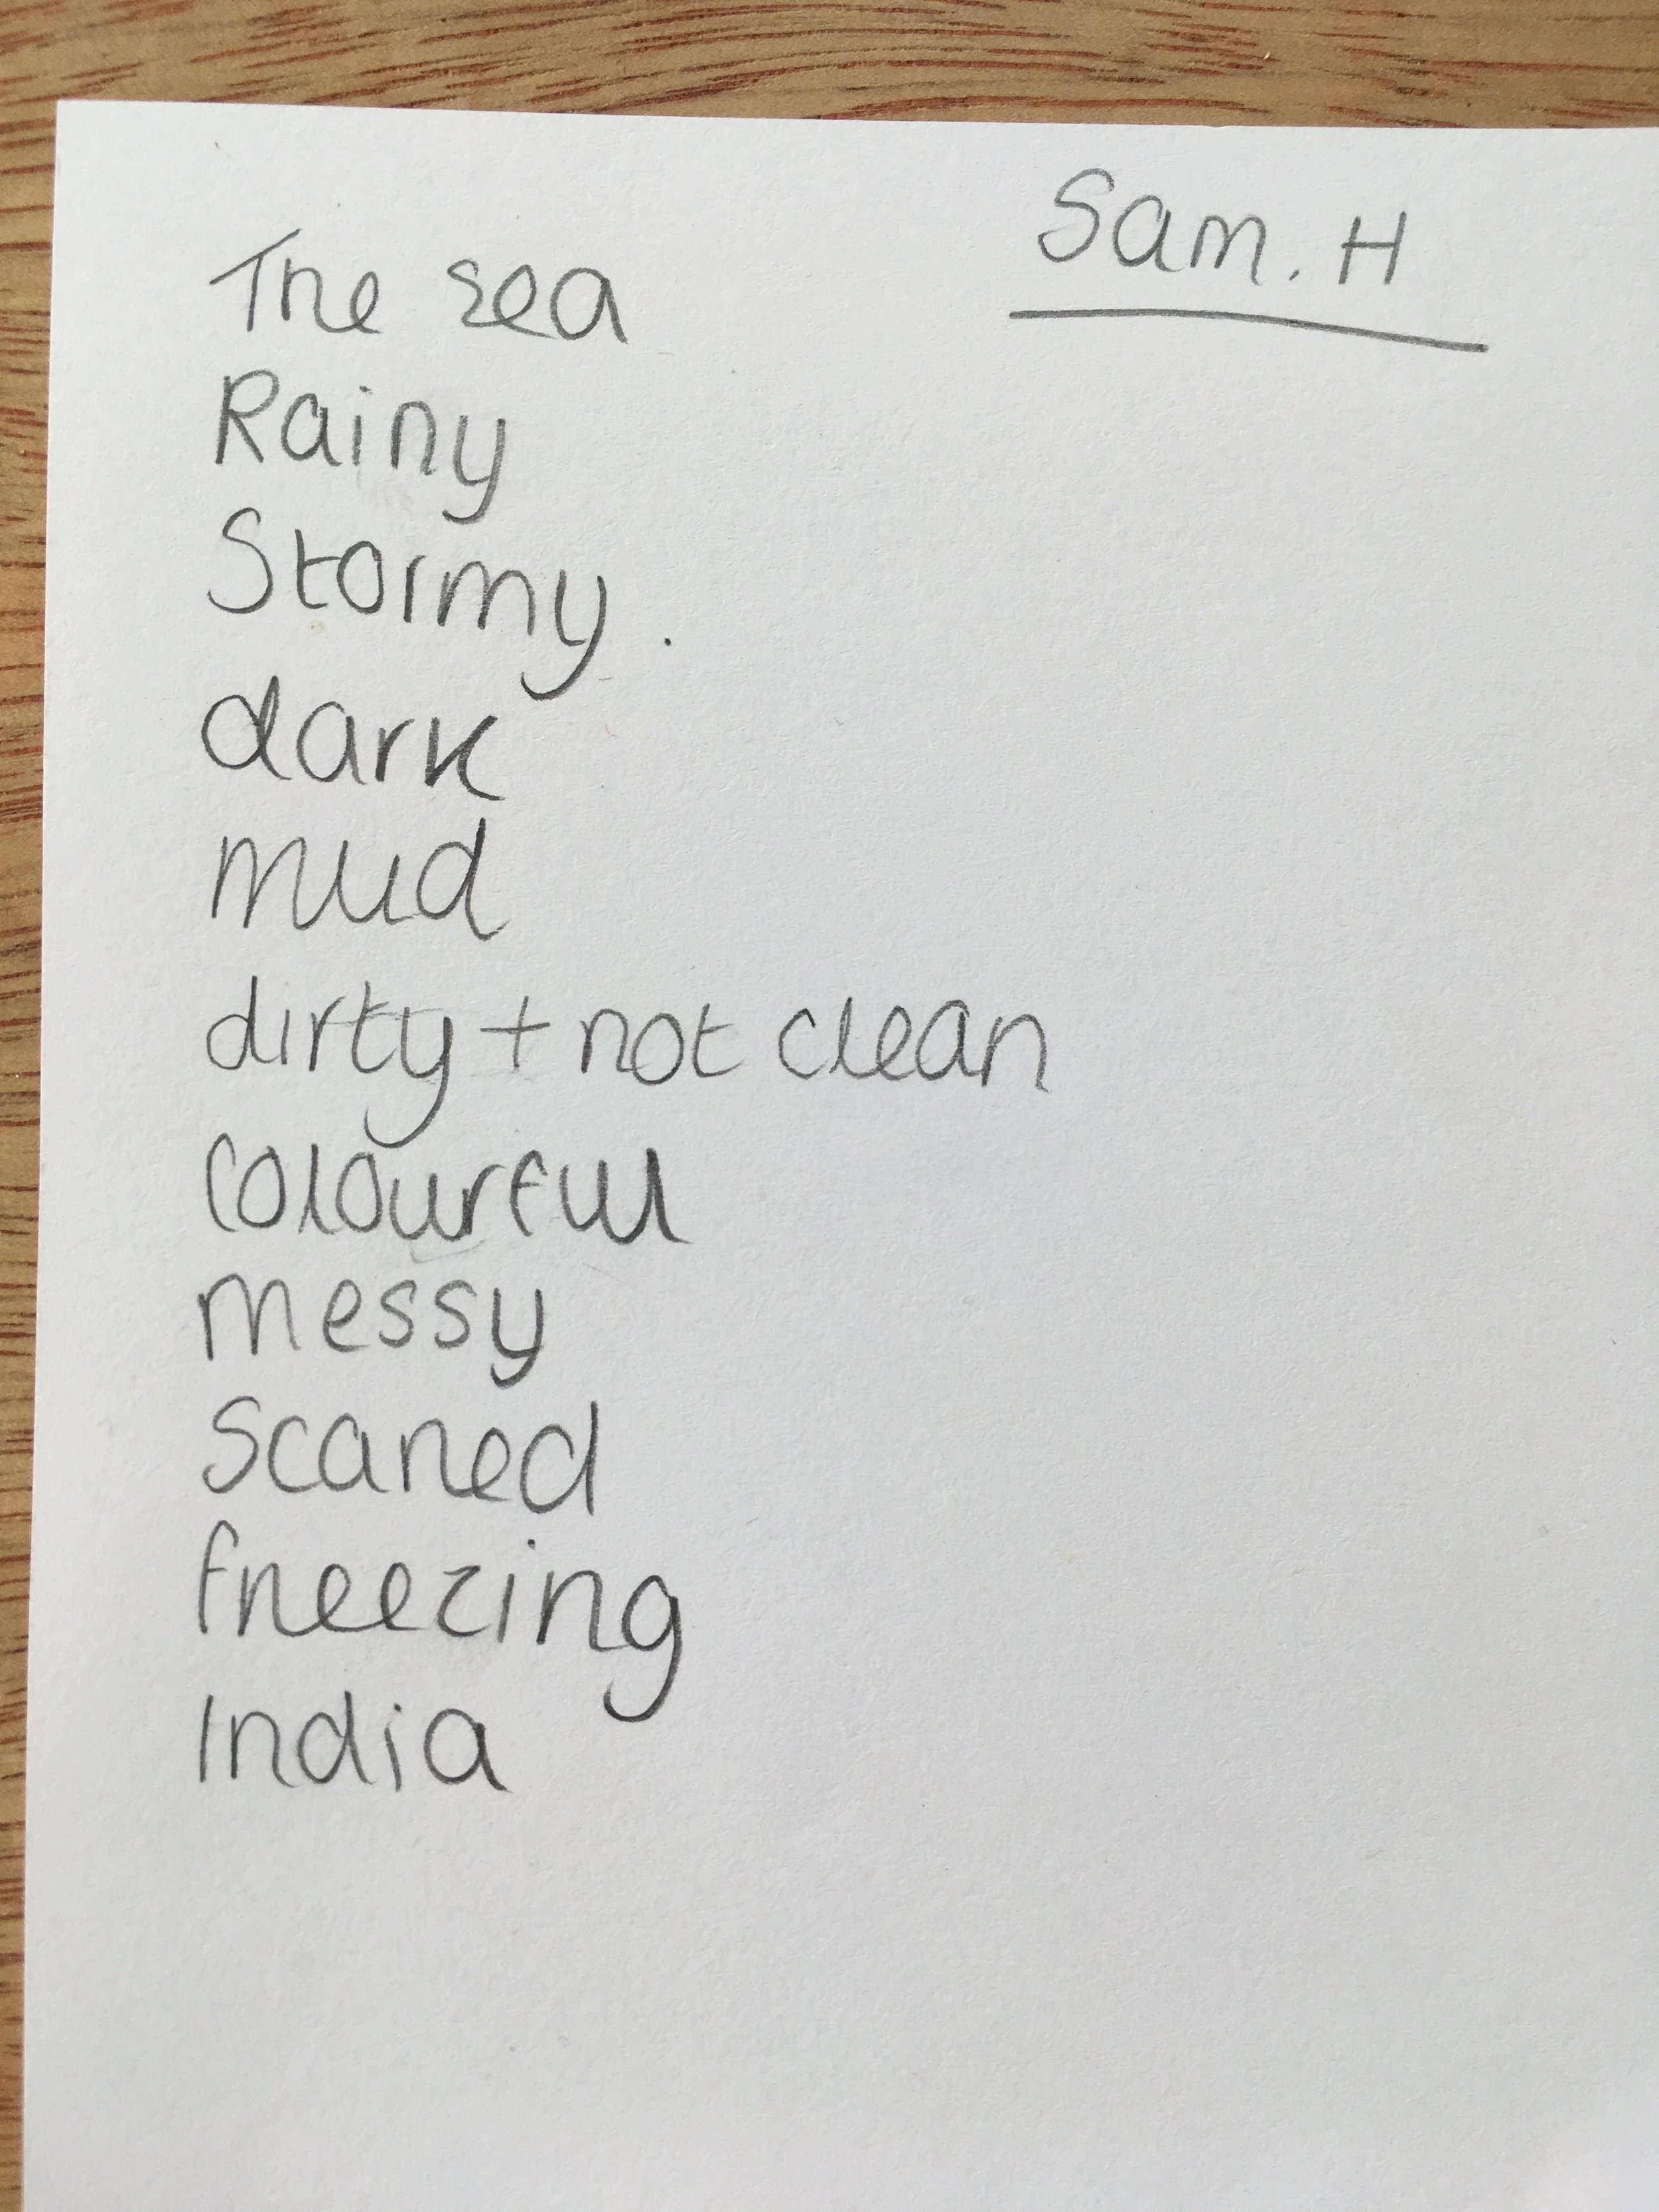 Sam. H
The sea
Rainy
Stormy.
dark
mud
dirty + not clean
colourful
messy
scared
freezing
India